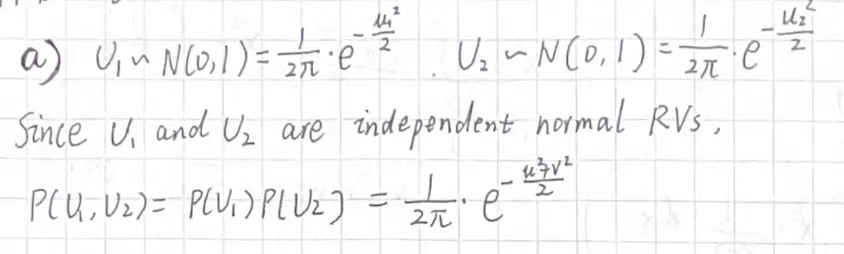 a) U₁ ~ N(0,1) = \frac{1}{2π} · e^{-\frac{u₁²}{2}} . U₂ ~ N(0,1) = \frac{1}{2π} · e^{-\frac{u₂²}{2}}
Since U₁ and U₂ are independent normal RVs,
P(U₁,U₂) = P(U₁)P(U₂) = \frac{1}{2π} · e^{-\frac{u²+v²}{2}}